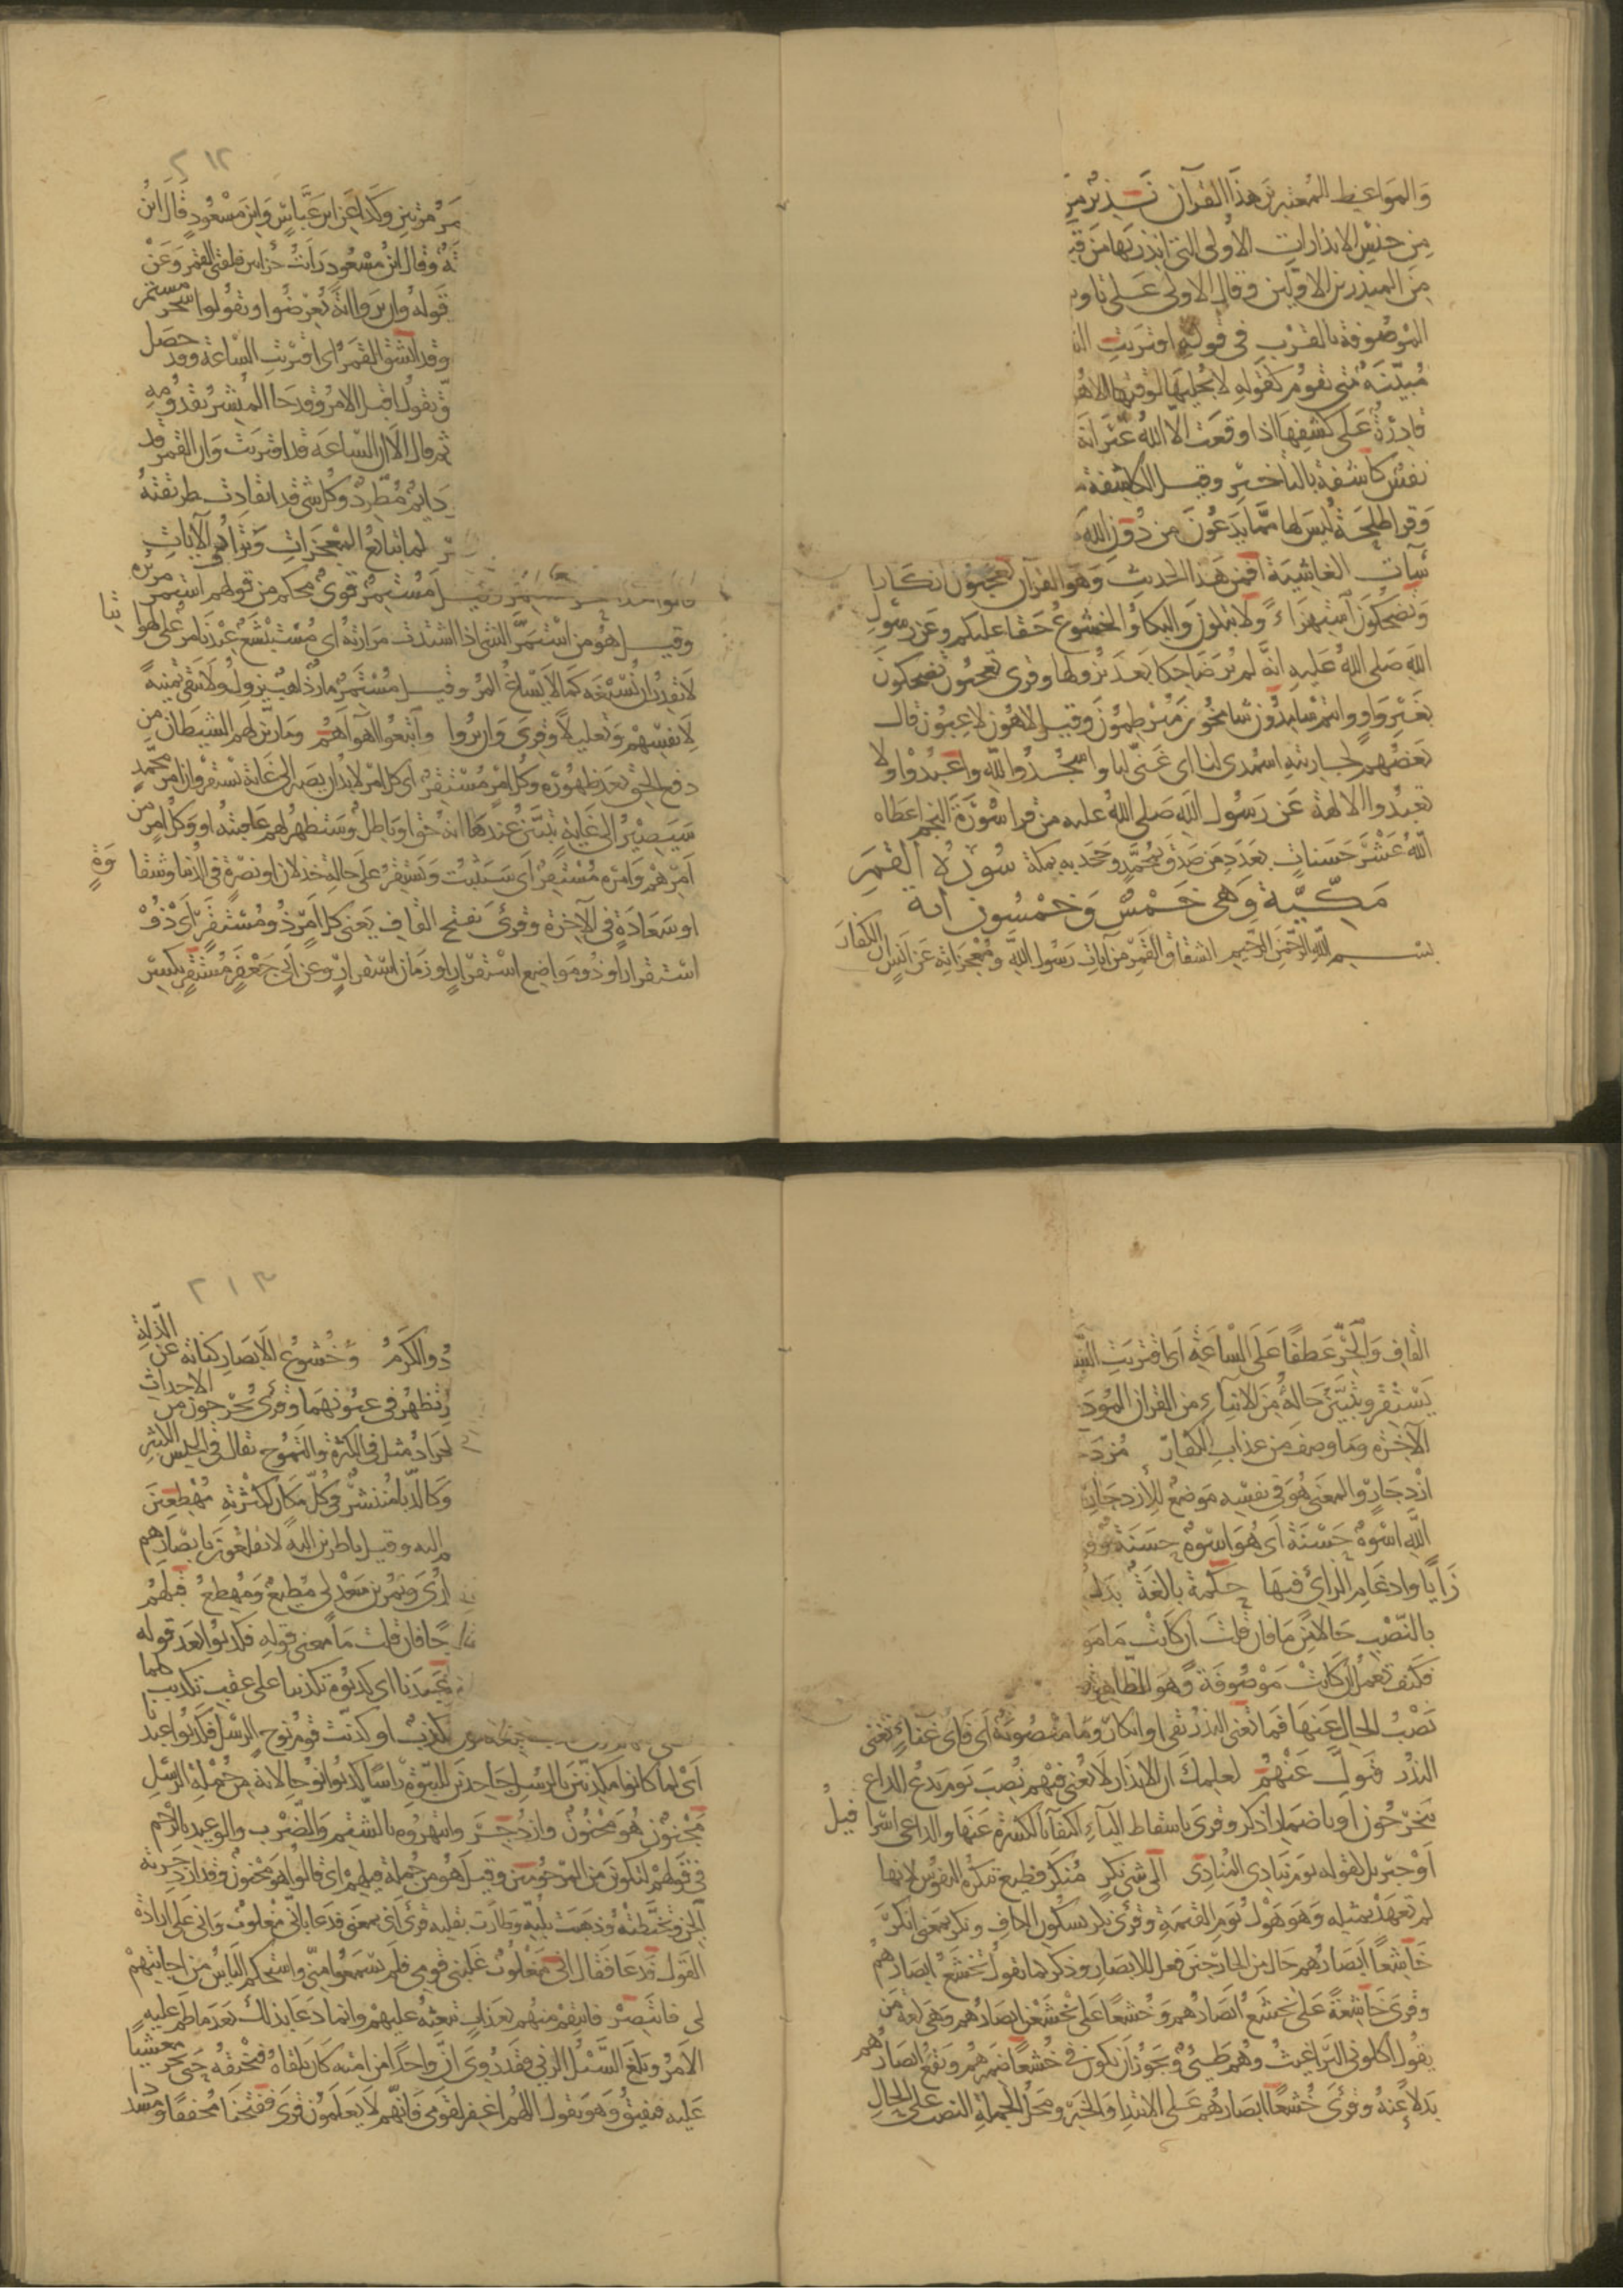 والمواعظ المعتبرين هذا القرآن نذير من
من جنس الانذارات الأولى التى انذر بها من قبـ
من المنذرين الاوّلين وقال الاولى على تاويـ
الموصوفة بالقرب في قوله اقتربت السا
مبيّنة متى تقوم كقوله لا يجليها لوقتها الا هو
قادرة على كشفها اذا وقعت الا الله غير انه
نفس كاشفة بالتاخير وقيل الكاشفة
وقرا طلحة ليس لها مما يدعون من دون الله
سآت الغاشية افمن هذا الحديث وهو القرآن تعجبون انكارا
وتضحكون استهزاءً ولا تبكون والبكاؤ الخشوع حقا عليكم وعن رسول
الله صلى الله عليه انه لم ير ضاحكا بعد نزولها وقرئ تعجبون تضحكون
بغير واو وانتم سامدون شامخون مبرطمون وقيل لاهون لاعبون قال
بعضهم لجاريته اسمدى لنا اى غنى لنا واسجدوا لله واعبدوا ولا
تعبدوا الالهة عن رسول الله صلى الله عليه من قرا سورة النجم اعطاه
الله عشر حسنات بعدد من صدق بمحمد وجحد به بمكة سورة القمر
مكيّة وهى خمس وخمسون اية
بسم الله الرحمن الرحيم انشقاق القمر من آيات رسول الله ومعجزاته عن انس ان الكفار
٢١٢
مر مرتين وكذا عن ابن عباس وابن مسعود قال ابن
ـة وقال ابن مسعود رأيت حراء بين فلقتى القمر وعن
قوله وان يروا اية يعرضوا ويقولوا سحر مستمر
وقد انشق القمر اى اقتربت الساعة وقد حصل
ـق تقول اقبل الامر وقد جا المبشر بقدومه
ثم قال الا ان الساعة قد اقتربت وان القمر قد
دائم مطّرد وكل شئ قد انقادت طريقته
لما تتابع المعجزات وترادف الآيات
مستمر قوى محكم من قولهم استمر مريره
وقيل هو من استمر الشئ اذا اشتدت مرارته اى مستبشع عندنا مر على لهواتنا
لا نقدر ان نسيغه كما لا يساغ المر وقيل مستمر مار ذاهب يزول ولا يبقى تمنية
لانفسهم وتعليلا وقرئ وان يروا واتبعوا اهواءهم وما زين لهم الشيطان من
دفع الحق بعد ظهوره وكل امر مستقر اى كل امر لابد ان يصير الى غاية يستقر وان امر محمد
سيصير الى غاية يتبين عندها انه حق او باطل وستظهر لهم عاقبته او وكل امر من
امرهم وامره مستقر اى سيثبت ويستقر على حالة خذلان او نصرة في الدنيا وشقاوة
او سعادة في الآخرة وقرئ بفتح القاف يعنى كل امر ذو مستقر اى ذو
استقرار او ذو مواضع استقرار او زمان استقرار وعن ابى جعفر مستقر بكسر
القاف والجر عطفا على الساعة اى اقتربت السا
يستقر ويتبين حاله من الانباء من القران المود
الآخرة وما وصف من عذاب الكفار مزدجـ
ازدجار والمعنى هو في نفسه موضع للازدجار
الله اسوة حسنة اى هو اسوة حسنة وقر
زايا وادغام الزاى فيها حكمة بالغة بدل
بالنصب حالا من ما فان قلت ان كانت ما مو
فكيف تعمل ان كانت موصوفة وهو الظاهر
نصب الحال عنها فما تغنى النذر نفى او انكار وما منصوبة اى فاى غناء تغنى
النذر فتول عنهم لعلمك ان الانذار لا يغنى فيهم نصب يوم يدع الداع
يخرجون او باضمار اذكر وقرئ باسقاط الياء اكتفاء بالكسرة عنها والداعى اسرافيل
او جبريل لقوله يوم ينادى المنادى الى شئ نكر منكر فظيع تنكره النفوس لانها
لم تعهد بمثله وهو هول يوم القيمة وقرئ نكر بسكون الكاف ونكر بمعنى انكر
خاشعا ابصارهم حال من الخارجين فعل للابصار وذكر كما تقول تخشع ابصارهم
وقرئ خاشعة على تخشع ابصارهم وخشعا على تخشعن ابصارهم وهى لغة من
يقول اكلونى البراغيث وهم طيئ ويجوز ان يكون في خشعا ضميرهم وتقع ابصارهم
بدلا عنه وقرئ خشعا ابصارهم على الابتدا والخبر ومحل الجملة النصب على الحال
٢١٣
ذو الكرم وخشوع الابصار كناية عن الذلة
تظهر في عيونهما وقرئ يخرجون من الاجداث
لجراد مثل في الكثرة والتموج يقال في الجيش الكثير
وكالدبا منتشر في كل مكان لكثرته مهطعين
اليه وقيل ناظرين اليه لا يقلعون بابصارهم
ارى ونمر بن سعد لى مطيع ومهطع قبلهم
فان قلت ما معنى قوله فكذبوا بعد قوله
عبدنا اى كذبوه تكذيبا على عقب تكذيب كلما
مكذب او كذبت قوم نوح الرسل فكذبوا عبدنا
اى لما كانوا مكذبين بالرسل جاحدين للنبوة راسا كذبوا نوحا لانه من جملة الرسل
مجنون هو مجنون وازدجر وانتهروه بالشتم والضرب والوعيد بالرجم
في قولهم لتكونن من المرجومين وقيل هو من جملة قيلهم اى قالوا هو مجنون وقد ازدجرته
الجن وتخبطته وذهبت بلبه وطارت بقلبه قرئ انى بمعنى فدعا بانى مغلوب وانى على ارادة
القول فدعا فقال انى مغلوب غلبنى قومى فلم يسمعوا منى واستحكم الياس من اجابتهم
لى فانتصر فانتقم منهم بعذاب تبعثه عليهم وانما دعا بذلك بعد ما طم عليه
الامر وبلغ السيل الزبى فقد روى ان واحدا من امته كان يلقاه فيخنقه حتى يخر مغشيا
عليه فيفيق وهو يقول اللهم اغفر لقومى فانهم لا يعلمون قرئ ففتحنا مخففا ومشددا